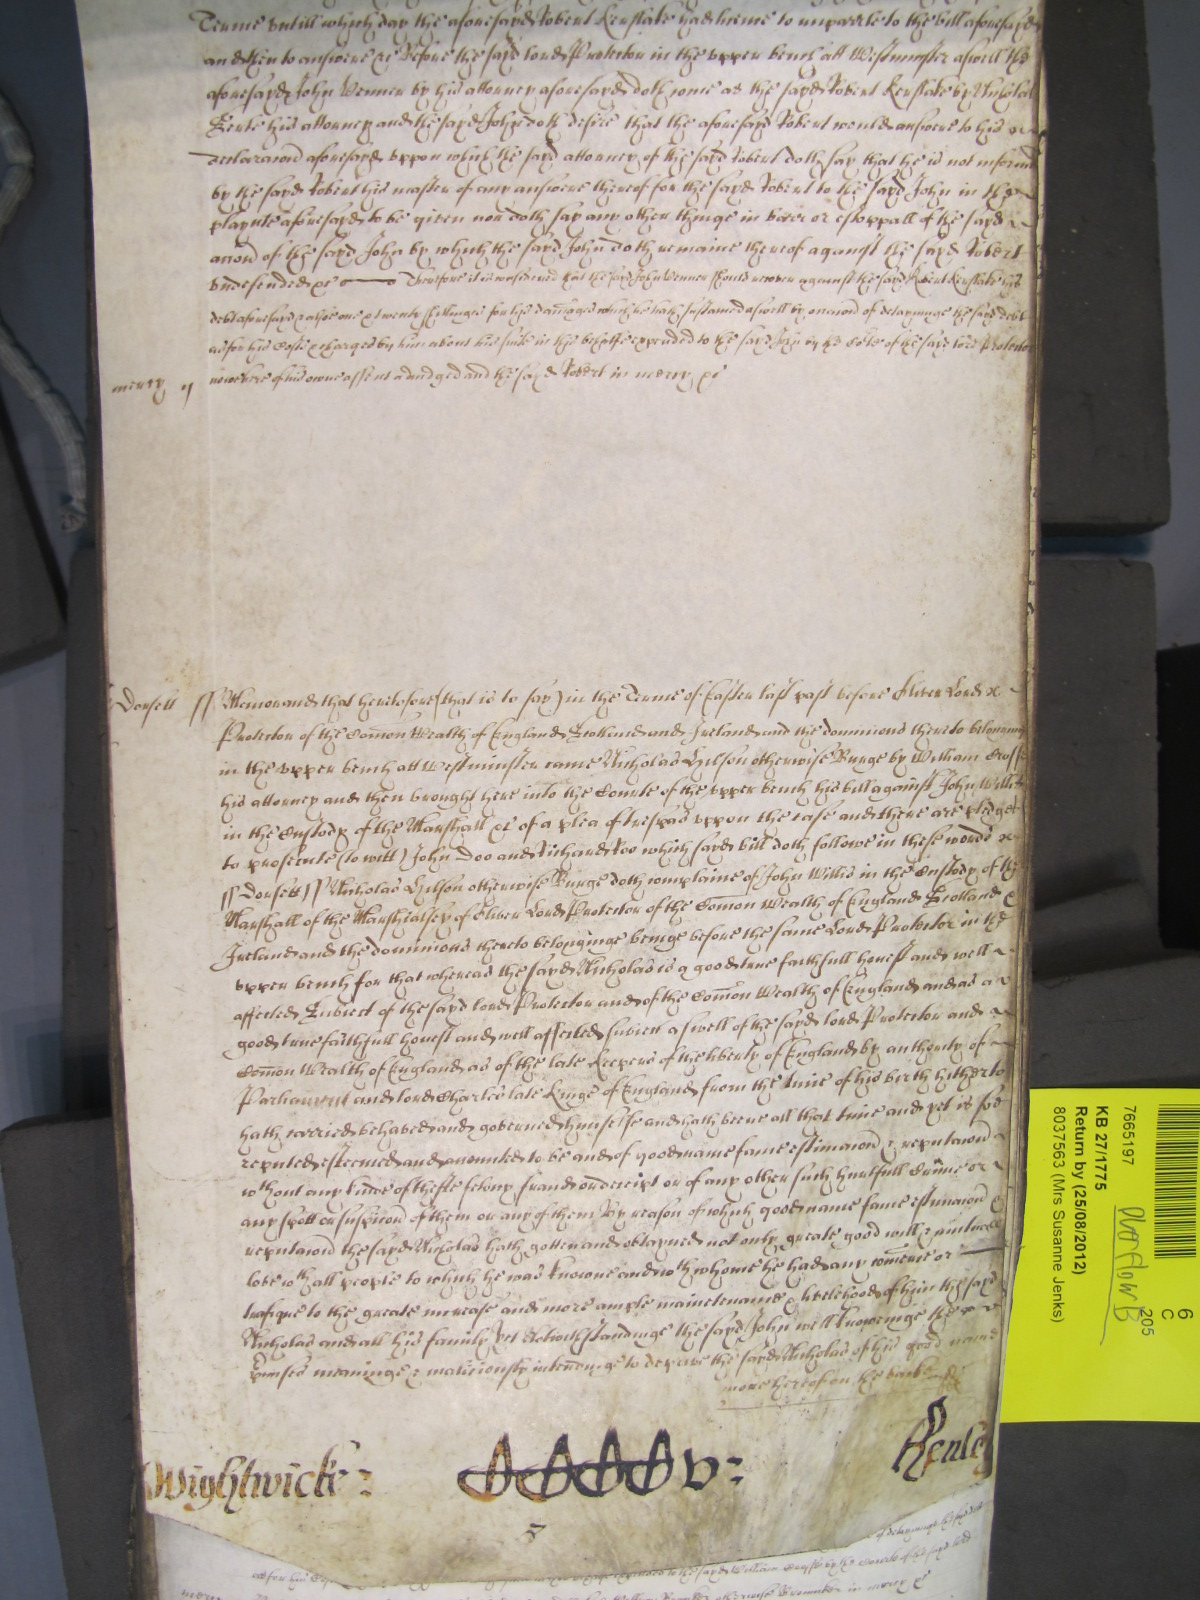 Terme untill which day the aforesayd Robert Kerslake had leime to imparle to the bill aforesayd
and then to answere &c Before the sayd lord Protector in the upper bench att Westminster aswell the
aforesayd John Wenner by his attorney aforesayd doth come as the sayd Robert Kerslake by
his attorney and the sayd John doth desire that the aforesayd Robert would answere to his
declaracion aforesayd uppon which the sayd attorney of the sayd Robert doth say that he is not informed
by the sayd Robert his master of any answere thereof for the sayd Robert to the sayd John in the
playnte aforesayd to be given nor doth say any other thinge in barr or estoppall of the sayd
accion of the sayd John by which the sayd John doth remaine thereof against the sayd Robert
undefended &c Therefore it is considered that the sayd John Wenner should recover against the sayd Robert Kerslake his
debt aforesayd & alsoe one & twenty shillinges for his damages which he hath sustained aswell by occasion of detayninge the sayd debt
as for his Costs & charges by him about his suite in this behalfe expended to the sayd John by the Cote of the sayd lord Protector
mercy
now here of his owne assent adiudged and the sayd Robert in mercy &c
Dorsett ss Memorand that heretofore (that is to say) in the Terme of Easter last past before Oliver Lord
Protector of the Comon Wealth of England Scotland and Ireland and the dominions thereto belonging
in the upper bench att Westminster came Nicholas Gilson otherwise Burge by William Crosse
his attorney and then brought here into the Courte of the upper bench his bill against John Willis
in the Custody of the Marshall &c of a plea of trespas uppon the case and there are pledges
to prosecute (to witt) John Doo and Richard Roo which sayd bill doth followe in these words
ss Dorsett ss Nicholas Gilson otherwise Burge doth complaine of John Willis in the Custody of the
Marshall of the Marshalsey of Oliver Lord Protector of the Comon Wealth of England Scotland &
Ireland and the dominions thereto belonginge beinge before the same Lord Protector in the
upper bench for that whereas the sayd Nicholas is a good true faithfull honest and well
affected Subiect of the sayd lord Protector and of the Comon Wealth of England and as a
good true faithfull honest and well affected subiect aswell of the sayd lord Protector and
Comon Wealth of England as of the late Keepers of the liberty of England by authority of
Parliament and lord Charles late Kinge of England from the time of his birth hitherto
hath carried behaved and governed himselfe and hath beene all that time and yet is soe
reputed esteemed and accounted to be and of good name fame estimacion & reputacion
without any kinde of thefte felony fraud or deceipt or of any other such hurtfull crime or
any spott or suspicion of them or any of them By reason of which good name fame estimacion &
reputacion the sayd Nicholas hath gotten and obtayned not only greate good will & mutuall
love with all people to which he was knowne and with whome he had any comerce or
trafique to the greate increase and more ample maintenance & livelehood of him the sayd
Nicholas and all his family Yet Notwithstandinge the sayd John well knoweinge the
premises meaninge & maliciously intendinge to deprive the sayd Nicholas of his good name
more hereof on the backe
Wightwicke:
Henley
6
C
205
7665197
KB 27/1775
Return by (25/08/2012)
8037563 (Mrs Susanne Jenks)